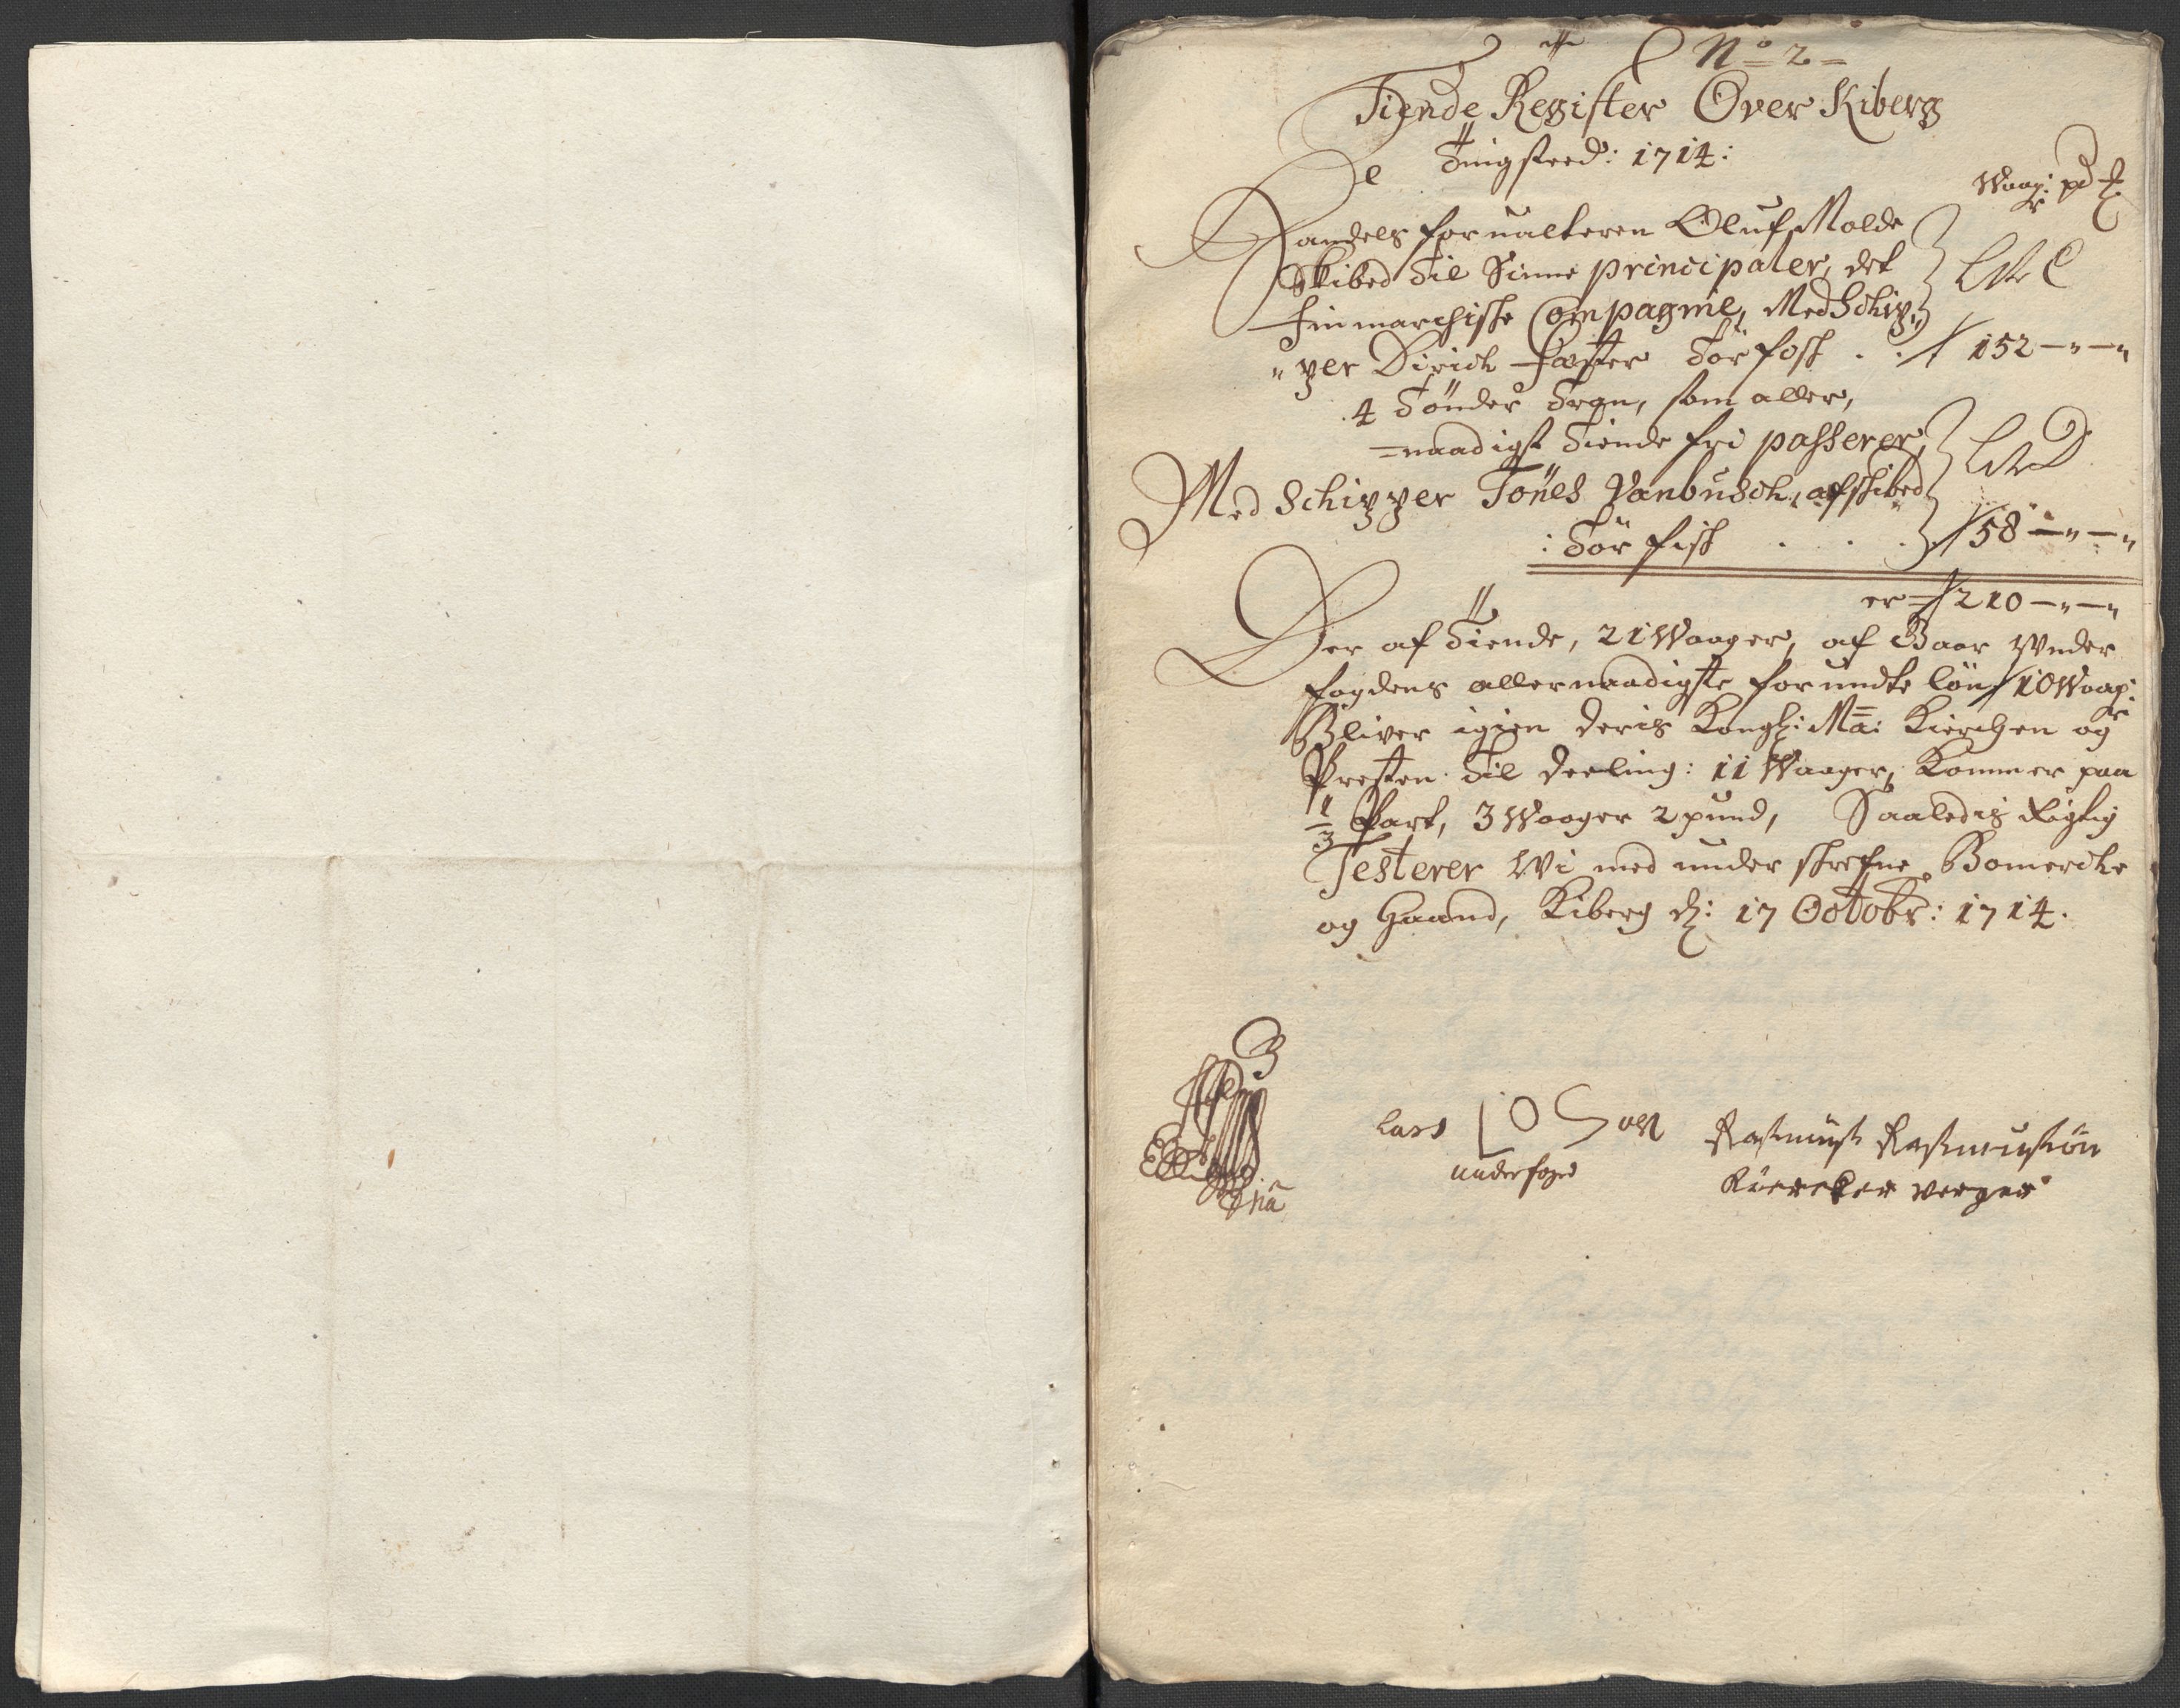 No 2
Tiende Register Over Kiberg
Tingsteed: 1714:
Waag: pd ℔
Handels forualteren Oluf Molde
Skibed Til Sinne principaler, det Litr C
Finmarchiske Compagnie, Med Schip„
„per Dirich Fæster Tör fisk . . / 152 —„—„
4 Tönder Tran, som aller,
=naadigst Tiende fri passerer, Litr D
Med Schipper Tönes Vanbusch, afskibed
: Tör fisk . . . / 58 —„—„
er / 210 —„—„
Der af Tiende, 21 Waager, af Baar Vnder
fogdens allernaadigste forundte lön / 10 Waag:
Bliver igien deris Kongl: Ma: Kierchen og
Presten Til deeling: 11 Waager, Kommer paa
1/3 Part, 3 Waager 2 pund, Saaledis Rigtig
Testerer Wi med under skrefne Bomercke
og Haand, Kiberg d: 17 Octobr: 1714.
Lars I O S oll Rasmus Rasmusøn
underfoged Kiercker verger